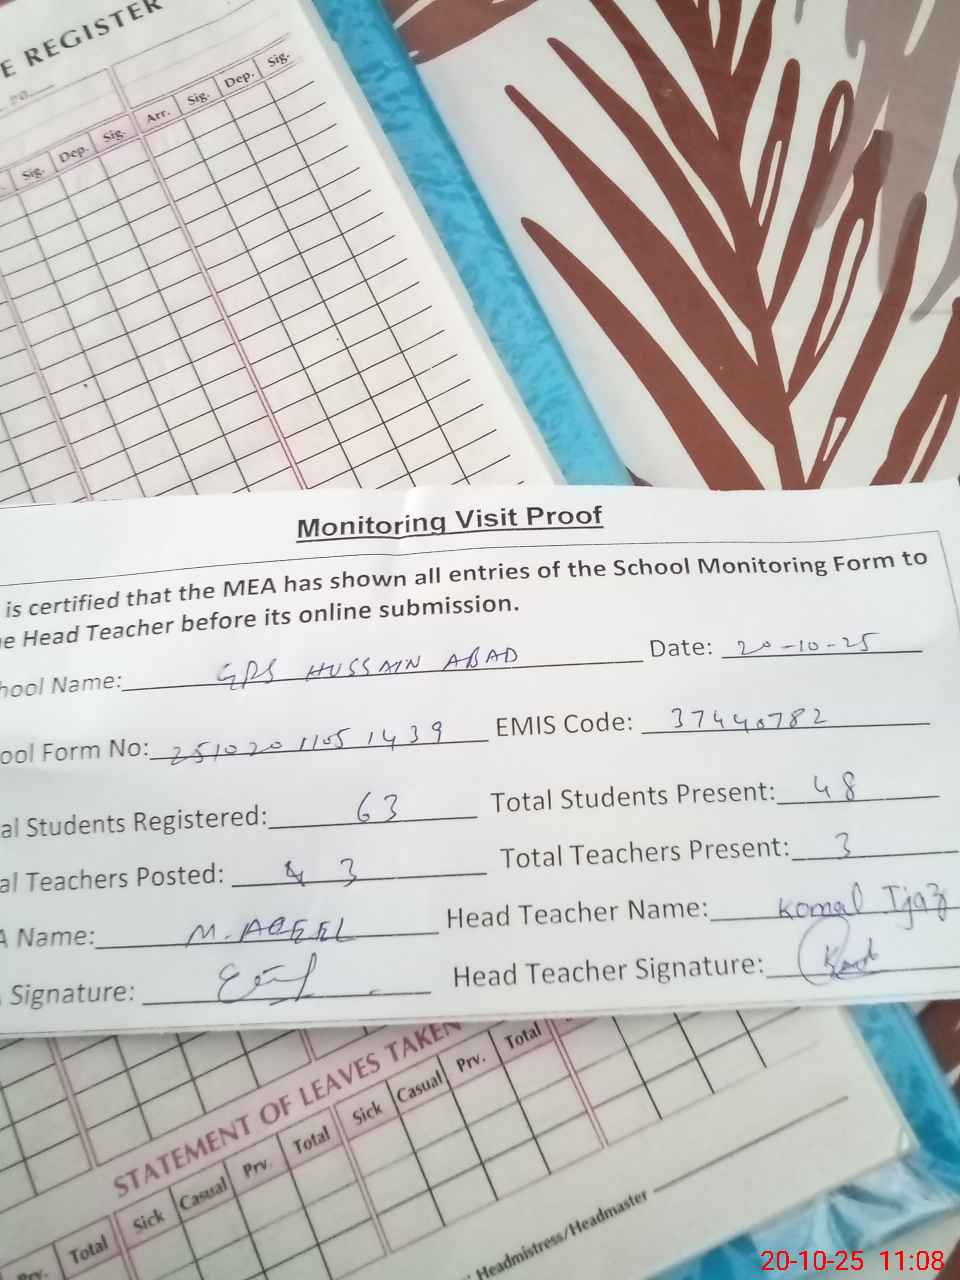 E REGISTER
Sig. Dep. Sig. Arr. Sig. Dep. Sig.
Monitoring Visit Proof
is certified that the MEA has shown all entries of the School Monitoring Form to
e Head Teacher before its online submission.
hool Name: GPS HUSSAIN ABAD Date: 20-10-25
ool Form No: 25102011051439 EMIS Code: 37440782
al Students Registered: 63 Total Students Present: 48
al Teachers Posted: 3 Total Teachers Present: 3
A Name: M. AQEEL Head Teacher Name: Komal Ijaz
Signature: Head Teacher Signature:
STATEMENT OF LEAVES TAKEN
Prv. Total Sick Casual Prv. Total Sick Casual Prv. Total
Headmistress/Headmaster
20-10-25 11:08